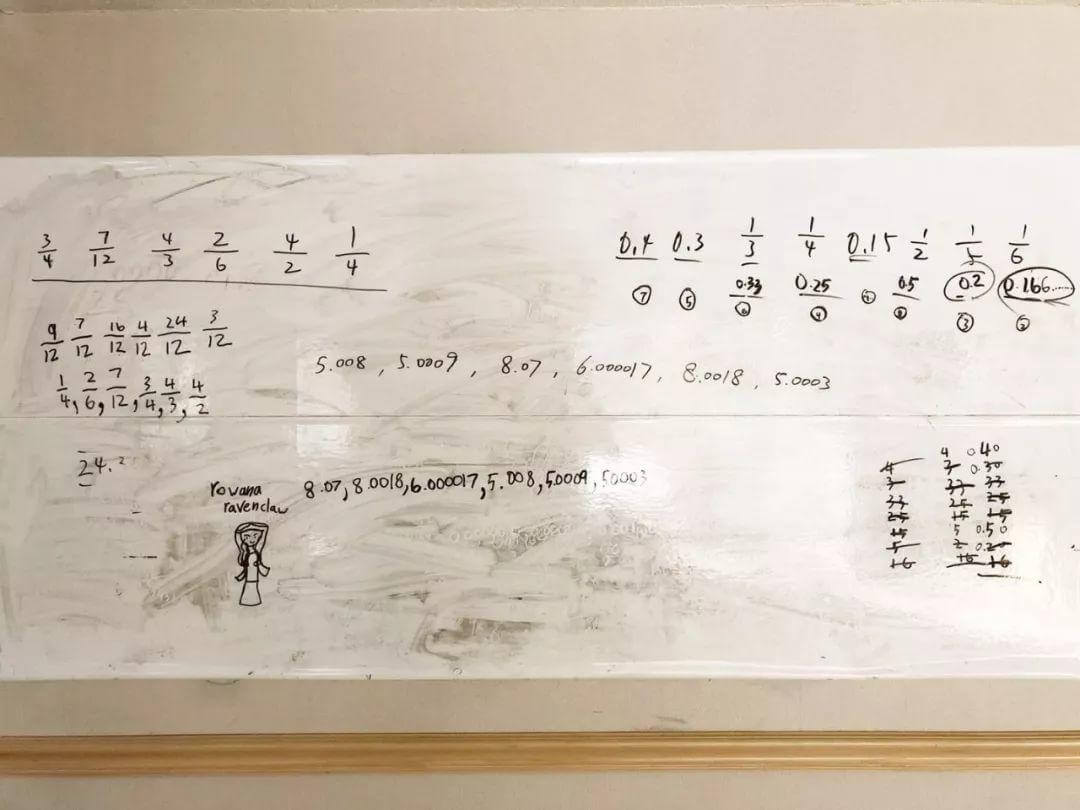 3/4 7/12 4/3 2/6 4/2 1/4
9/12 7/12 16/12 4/12 24/12 3/12
1/4, 2/6, 7/12, 3/4, 4/3, 4/2
24.²
0.4 0.3 1/3 1/4 0.15 1/2 1/5 1/6
0.33 0.25 0.5 0.2 0.166.....
⑦ ⑤ ⑥ ④ ① ⑧ ③ ②
5.008, 5.0009, 8.07, 6.000017, 8.0018, 5.0003
rowana
ravenclaw
8.07, 8.0018, 6.000017, 5.008, 5.0009, 5.0003
4 0.40
4 3 0.30
3 33 33
33 25 25
25 15 15
15 5 0.50
5 2 0.20
16 16 16